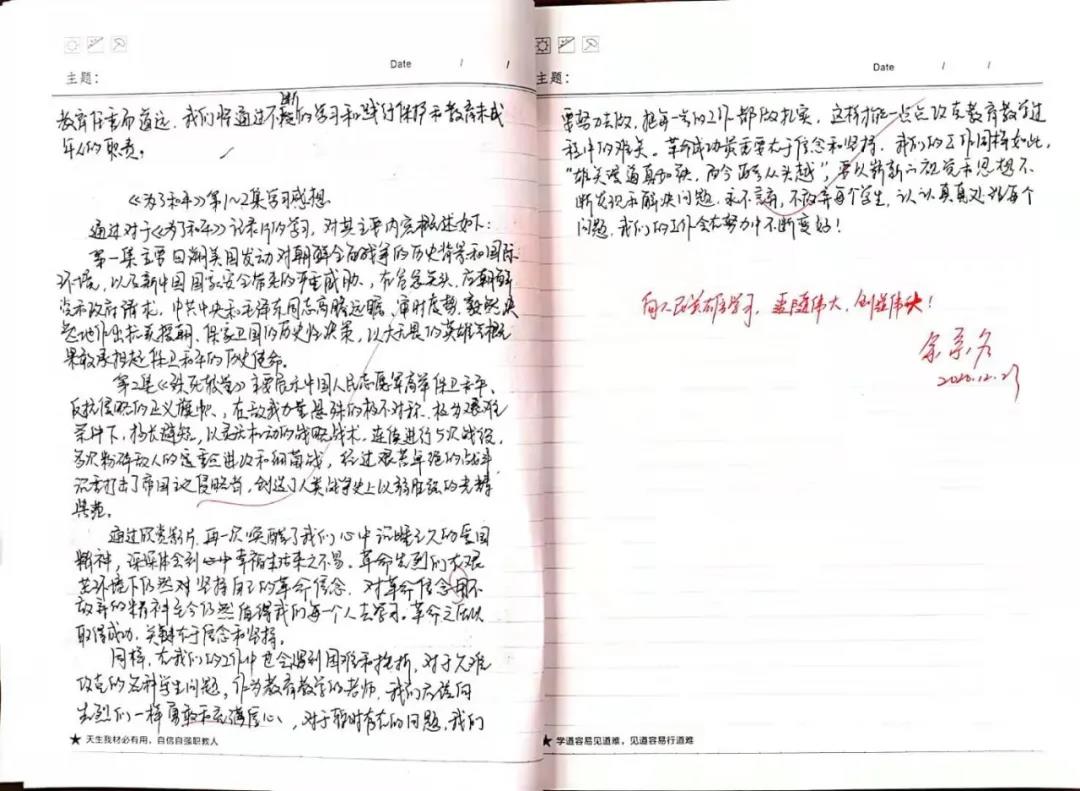 Date / /
主题：
教育任重而道远，我们将通过不断的学习和践行保护和教育未成
年人的职责。
《为了和平》第1~2集学习感想
通过对于《为了和平》记录片的学习，对其主要内容概述如下：
第一集主要回溯美国发动对朝鲜全面战争的历史背景和国际
环境，以及新中国国家安全带来的严重威胁，在危急关头，应朝鲜
党和政府请求，中共中央和毛泽东同志高瞻远瞩、审时度势、毅然决
然地作出抗美援朝、保家卫国的历史性决策，以大无畏的英雄气概
果敢承担起保卫和平的历史使命。
第2集《殊死较量》主要展示中国人民志愿军高举保卫和平、
反抗侵略的正义旗帜，在敌我力量悬殊的极不对称、极为艰难
条件下，扬长避短，以灵活机动的战略战术，连续进行5次战役，
多次粉碎敌人的重点进攻和细菌战，经过艰苦卓绝的战斗，
沉重打击了帝国主义侵略者，创造了人类战争史上以弱胜强的光辉
典范。
通过欣赏影片，再一次唤醒了我们心中沉睡已久的爱国
精神，深深体会到心中幸福生活来之不易。革命先烈们在艰
苦环境下仍然对坚持自己的革命信念，对革命信念用不
放弃的精神至今仍然值得我们每个人去学习。革命之所以
取得成功，关键在于信念和坚持。
同样，在我们的工作中也会遇到困难和挫折，对于久难
攻克的各种学生问题，作为教育教学的老师，我们应该向
先烈们一样勇敢和充满信心，对于暂时存在的问题，我们
★ 天生我材必有用，自信自强职教人
Date / /
主题：
要努力去做，把每一步的工作都做扎实，这样才能一点点攻克教育教学过
程中的难关。革命成功最主要在于信念和坚持，我们的工作同样如此，
“雄关漫道真如铁，而今迈步从头越”，要以崭新的视觉和思想不
断发现和解决问题，永不言弃，不放弃每个学生，认认真真处理每个
问题，我们的工作会在努力中不断变好！
向人民英雄学习，追随伟大，创造伟大！
2020.12.23
★ 学道容易见道难，见道容易行道难